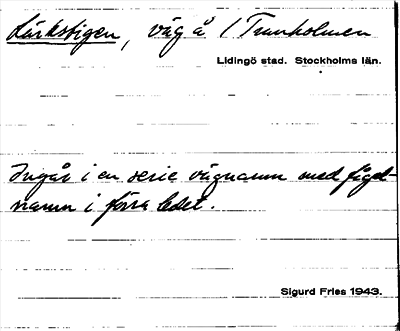 Lärkstigen, väg å / Tranholmen
Lidingö stad. Stockholms län.
Ingår i en serie vägnamn med fågel-
namn i förra ledet.
Sigurd Fries 1943.